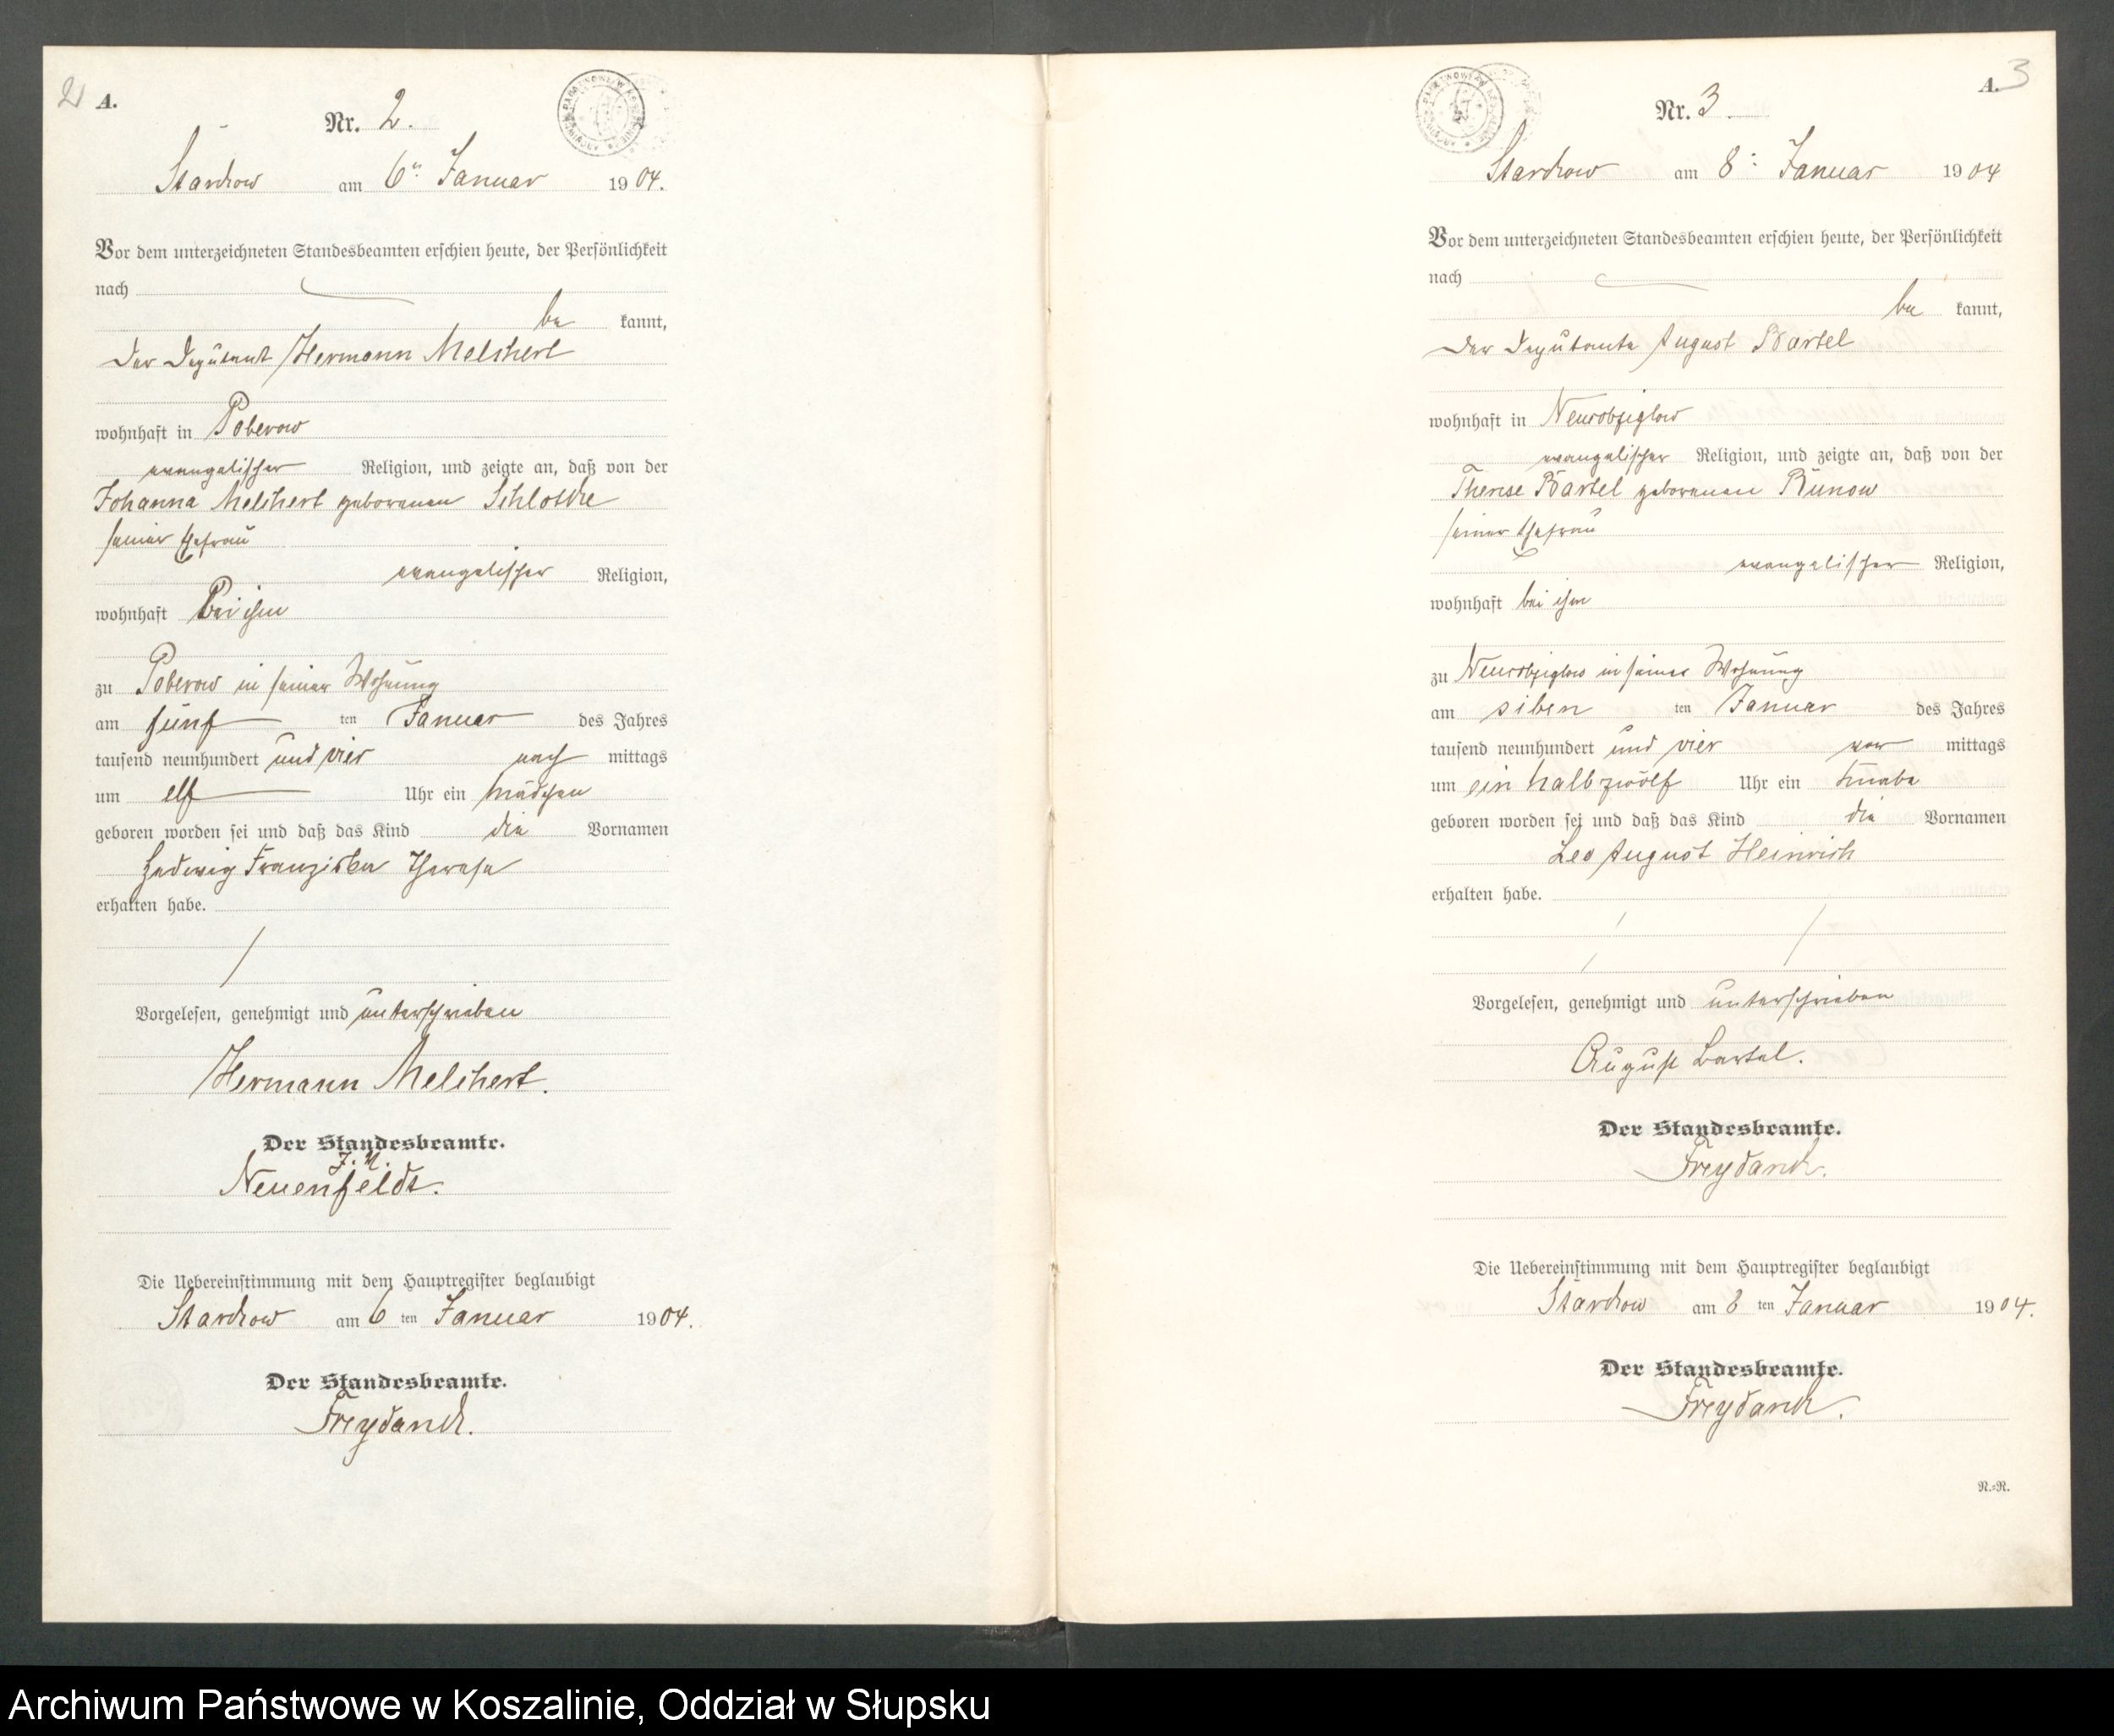 2
A.
Nr. 2.
Starckow am 6ten Januar 1904.
Vor dem unterzeichneten Standesbeamten erschien heute, der Persönlichkeit
nach
be kannt,
der Deputant Hermann Melchert
wohnhaft in Poberow
evangelischer Religion, und zeigte an, daß von der
Johanna Melchert geborenen Schloske
seiner Ehefrau
evangelischer Religion,
wohnhaft bei ihm
zu Poberow in seiner Wohnung
am fünf ten Januar des Jahres
tausend neunhundert und vier nach mittags
um elf Uhr ein Mädchen
geboren worden sei und daß das Kind die Vornamen
Hedwig Franziska Therese
erhalten habe.
Vorgelesen, genehmigt und unterschrieben
Hermann Melchert.
Der Standesbeamte.
Neuenfeldt.
Die Uebereinstimmung mit dem Hauptregister beglaubigt
Starckow am 6 ten Januar 1904.
Der Standesbeamte.
Freydanck.
A. 3
Nr. 3.
Starckow am 8 Januar 1904
Vor dem unterzeichneten Standesbeamten erschien heute, der Persönlichkeit
nach
be kannt,
der Deputante August Bartel
wohnhaft in Neurobjiglow
evangelischer Religion, und zeigte an, daß von der
Therese Bartel geborenen Runow
seiner Ehefrau
evangelischer Religion,
wohnhaft bei ihm
zu Neurobjiglow in seiner Wohnung
am siben ten Januar des Jahres
tausend neunhundert und vier vor mittags
um ein halb zwölf Uhr ein Knabe
geboren worden sei und daß das Kind die Vornamen
Leo August Heinrich
erhalten habe.
Vorgelesen, genehmigt und unterschrieben
August Bartel.
Der Standesbeamte.
Freydanck.
Die Uebereinstimmung mit dem Hauptregister beglaubigt
Starckow am 8 ten Januar 1904.
Der Standesbeamte.
Freydanck.
N.=N.
Archiwum Państwowe w Koszalinie, Oddział w Słupsku